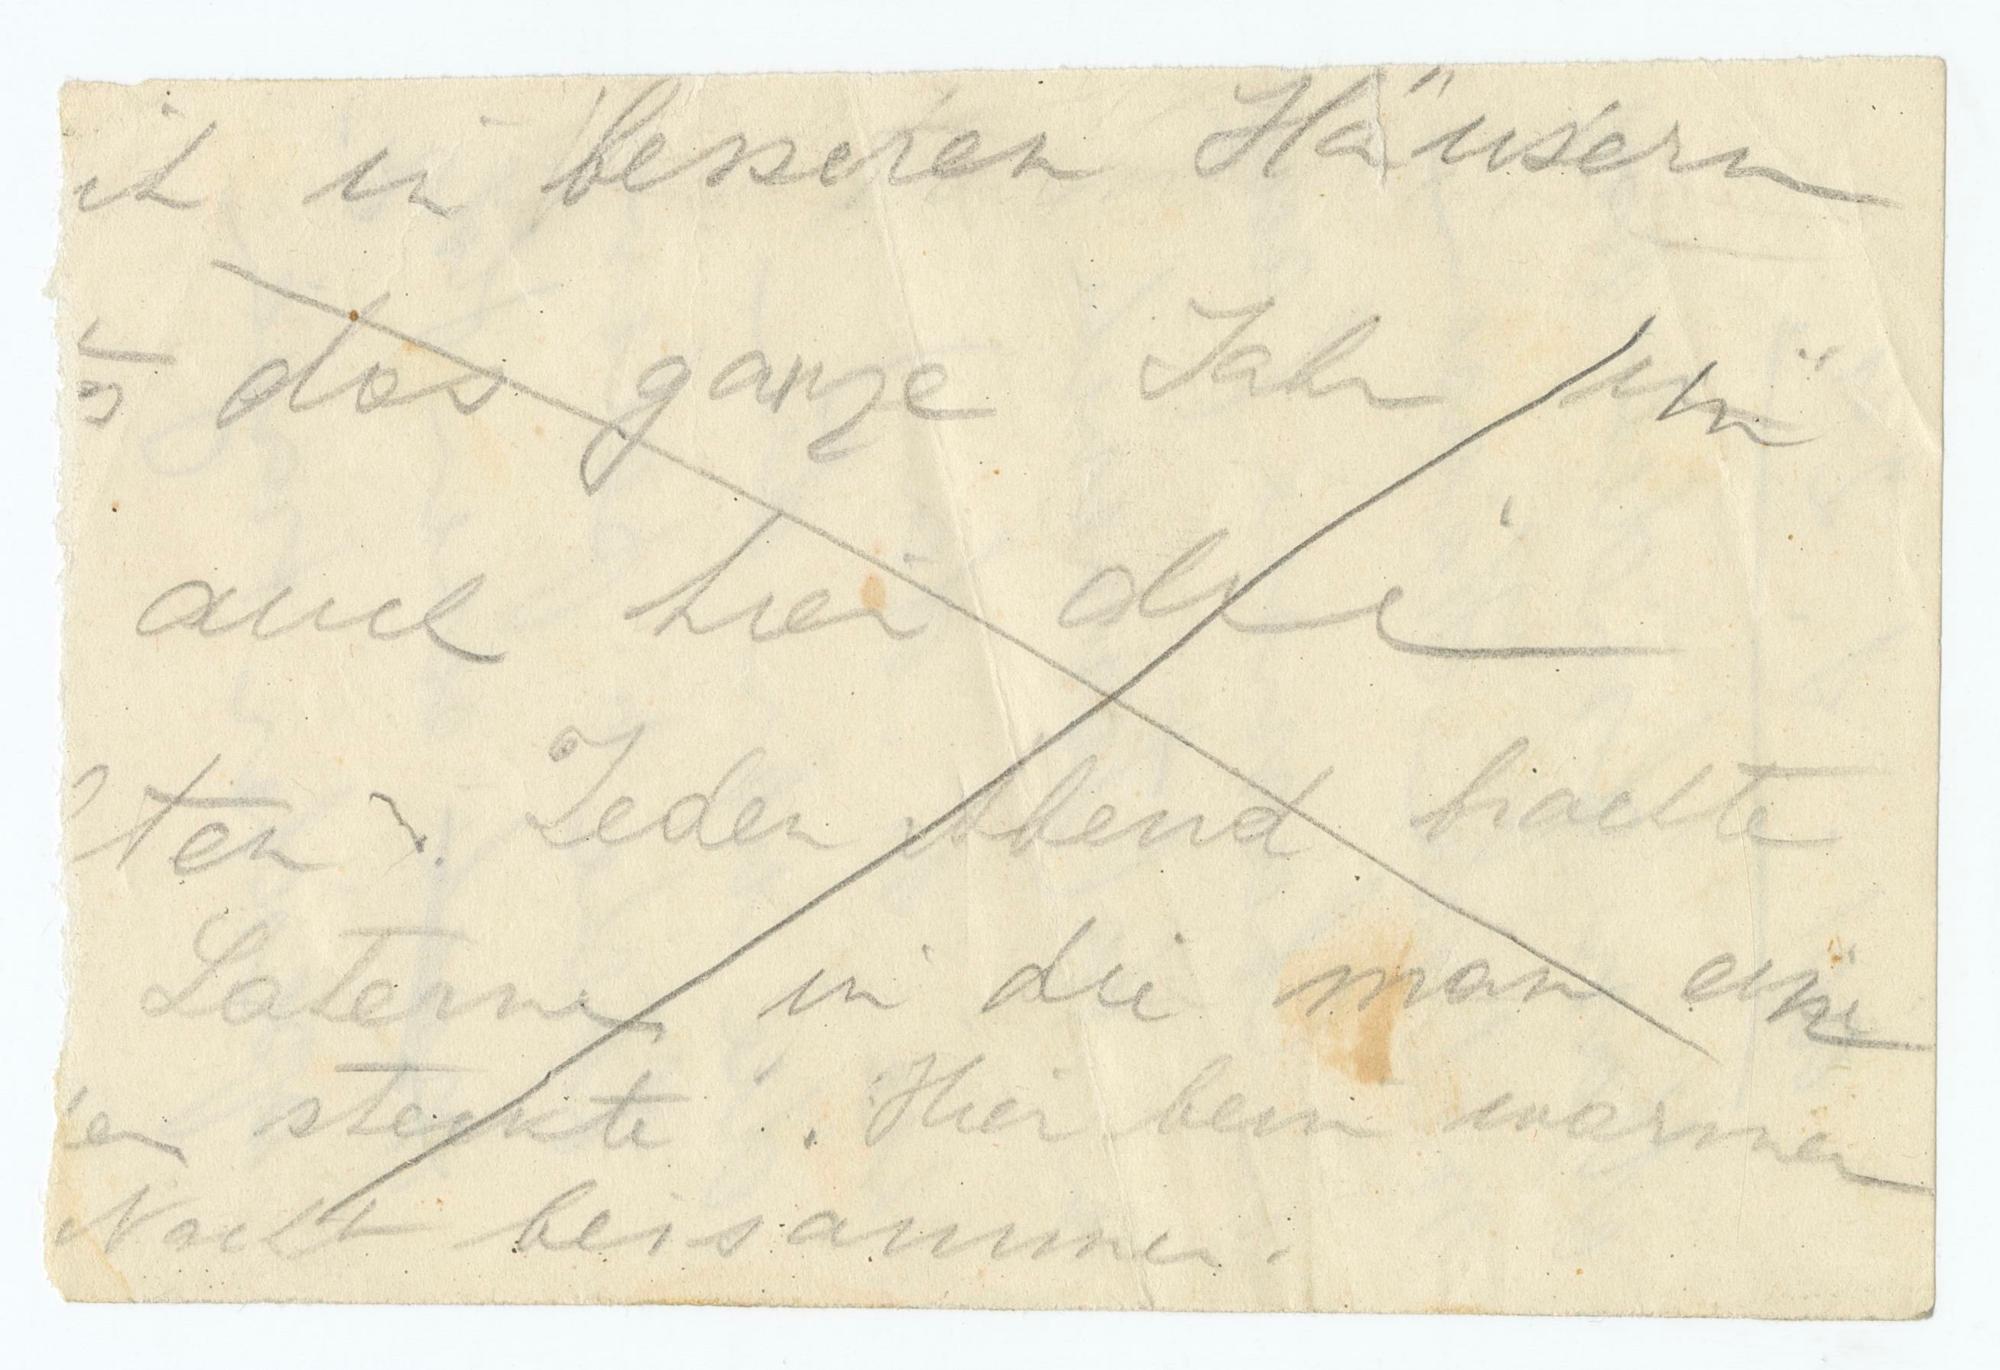 it in besseren Häusern
es das ganze Jahr in
auch hier die
ten. Jeden Abend brachte
Laterne in die man eine
en steckte. Hier beim warmen
Nacht beisammen.